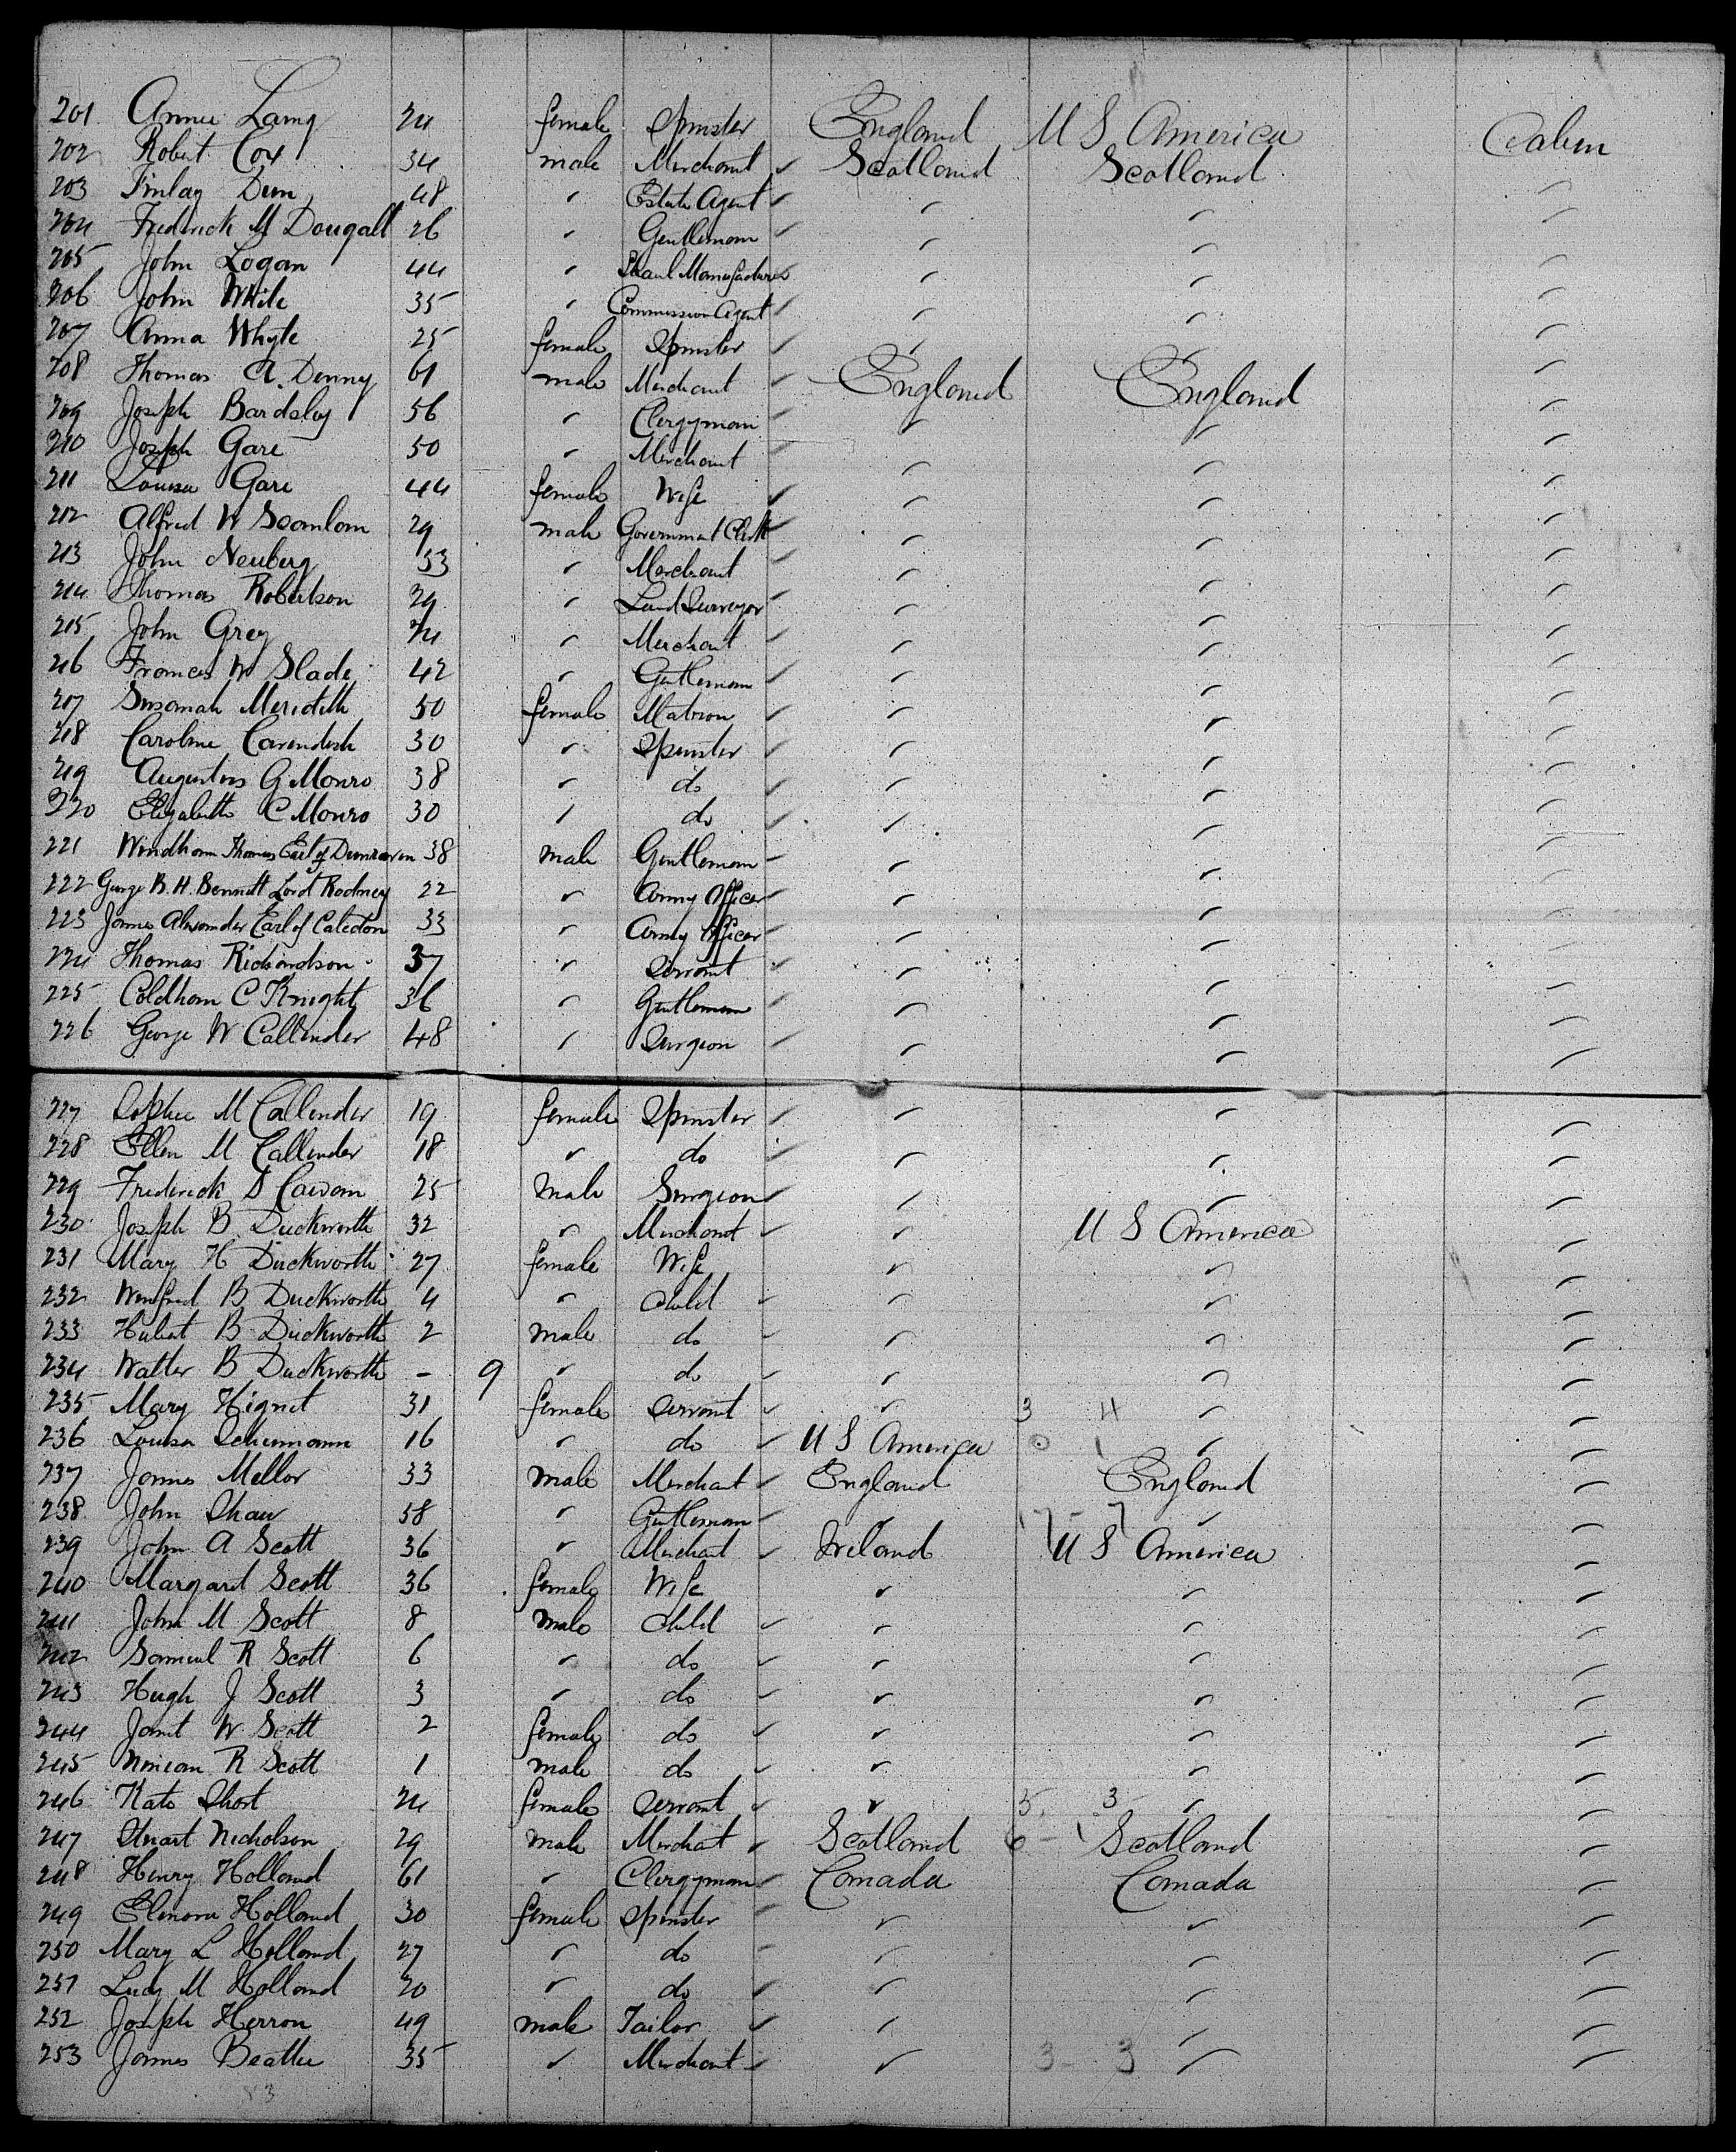 201 Annie Lang 24 female Spinster England U S America Cabin
202 Robert Cox 34 male Merchant ✓ Scotland Scotland "
203 Finlay Dun 48 " Estate Agent ✓ " " "
204 Frederick McDougall 26 " Gentleman ✓ " " "
205 John Logan 44 " Shawl Manufacturer " " "
206 John White 35 " Commission Agent ✓ " " "
207 Anna Whyte 25 female Spinster ✓ " " "
208 Thomas A. Denny 61 male Merchant ✓ England England "
209 Joseph Bardsley 56 " Clergyman ✓ " " "
210 Joseph Gare 50 " Merchant ✓ " " "
211 Louisa Gare 44 female Wife ✓ " " "
212 Alfred W Scanlan 29 male Government Clerk " " "
213 John Neuberg 53 " Merchant ✓ " " "
214 Thomas Robertson 29 " Land Surveyor ✓ " " "
215 John Grey 24 " Merchant ✓ " " "
216 Frances W Slade 42 " Gentleman ✓ " " "
217 Susanah Meridith 50 female Matron ✓ " " "
218 Caroline Cavendish 30 " Spinster ✓ " " "
219 Augustus G Monro 38 " do ✓ " " "
220 Elizabeth C Monro 30 " do ✓ " " "
221 Windham Thomas Earl of Dunraven 38 male Gentleman ✓ " " "
222 George B. H. Bennett Lord Rodney 22 " Army Officer " " "
223 James Alexander Earl of Caledon 33 " Army Officer " " "
224 Thomas Richardson 37 " Servant ✓ " " "
225 Coldham C Knight 36 " Gentleman ✓ " " "
226 George W Callender 48 " Surgeon ✓ " " "
227 Sophie M Callender 19 female Spinster ✓ " " "
228 Ellen M Callender 18 " do ✓ " " "
229 Frederick D Cawan 25 male Surgeon ✓ " " "
230 Joseph B Duckworth 32 " Merchant ✓ " U S America "
231 Mary H Duckworth 27 female Wife " " "
232 Winfred B Duckworth 4 " Child ✓ " " "
233 Hubert B Duckworth 2 male do ✓ " " "
234 Walter B Duckworth - 9 " do ✓ " " "
235 Mary Hignet 31 female Servant ✓ " 3 4 " "
236 Louisa Schumann 16 " do ✓ U S America 0 1 " "
237 James Mellor 33 male Merchant ✓ England England "
238 John Shaw 58 " Gentleman ✓ " 17 - 7 " "
239 John A Scott 36 " Merchant ✓ Ireland U S America "
240 Margaret Scott 36 female Wife " " "
241 John M Scott 8 male Child ✓ " " "
242 Samuel R Scott 6 " do ✓ " " "
243 Hugh J Scott 3 " do ✓ " " "
244 Janet W Scott 2 female do ✓ " " "
245 Ninian R Scott 1 male do ✓ " " "
246 Kate Short 24 female Servant ✓ " 5 3 " "
247 Stuart Nicholson 29 male Merchant ✓ Scotland 0 - 1 Scotland "
248 Henry Holland 61 " Clergyman ✓ Canada Canada "
249 Elenora Holland 30 female Spinster ✓ " " "
250 Mary L Holland 27 " do ✓ " " "
251 Lucy M Holland 20 " do ✓ " " "
252 Joseph Herron 49 male Tailor ✓ " " "
253 James Beattie 35 " Merchant ✓ " 3 - 3 " "